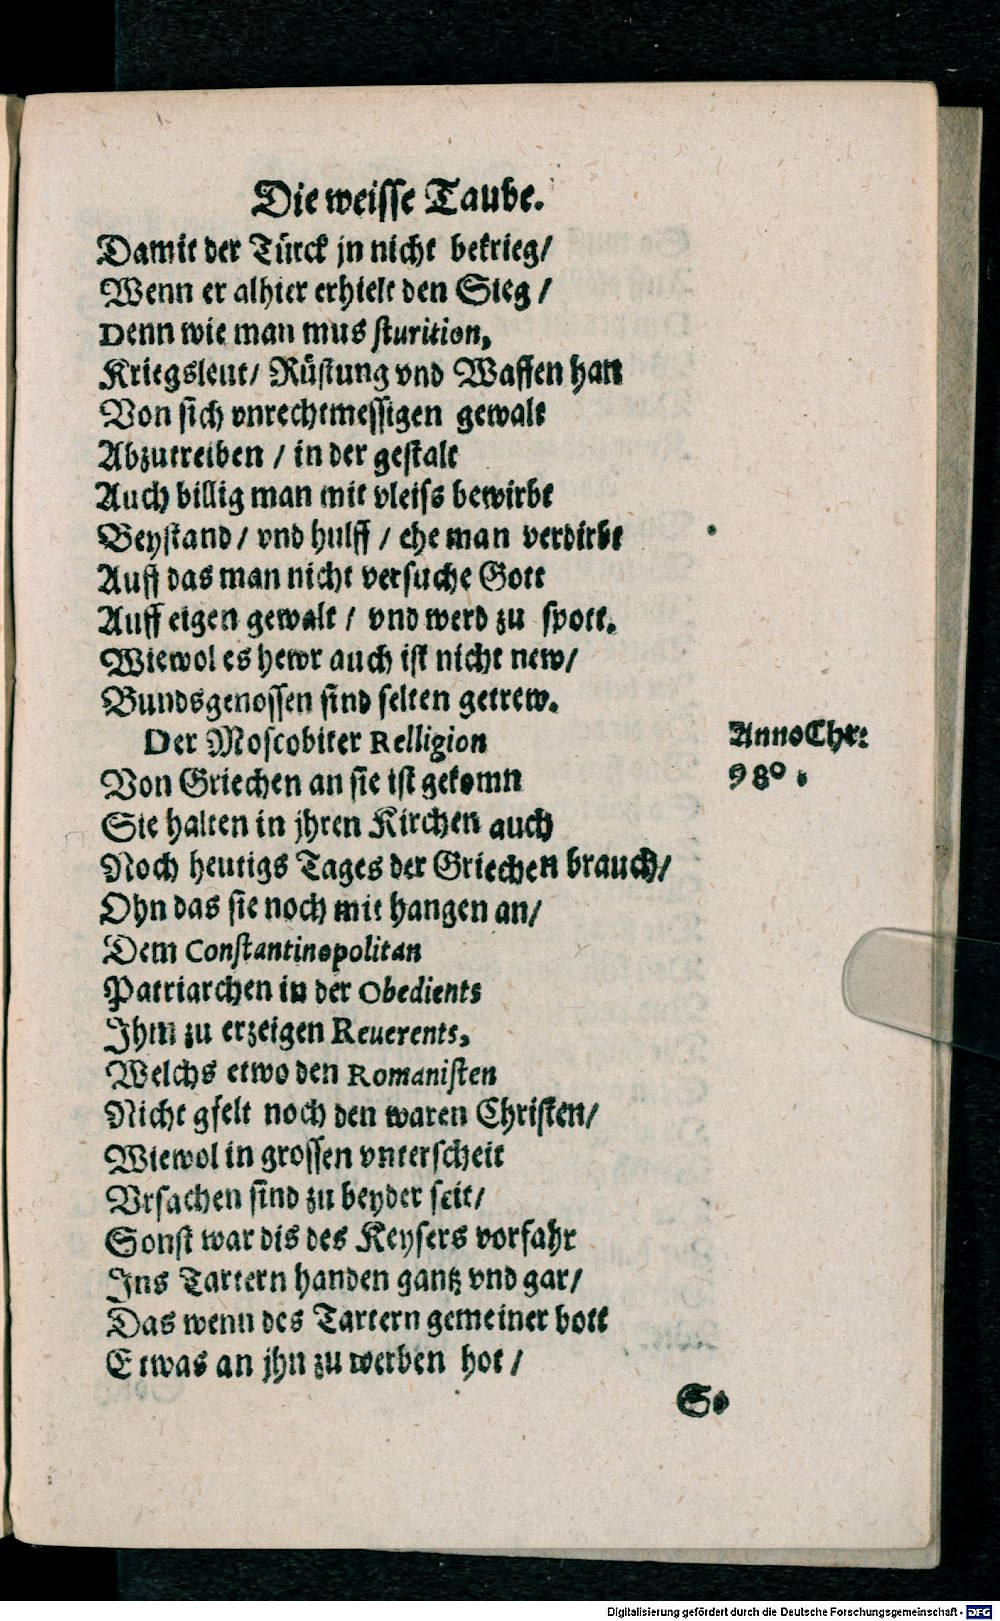 Die weisse Taube.
Damit der Türck jn nicht bekrieg/
Wenn er alhier erhielt den Sieg /
Denn wie man mus sturition,
Kriegsleut/ Rüstung vnd Waffen han
Von sich vnrechtmessigen gewalt
Abzutreiben / in der gestalt
Auch billig man mit vleiss bewirbt
Beystand / vnd hulff / ehe man verdirbt
Auff das man nicht versuche Gott
Auff eigen gewalt / vnd werd zu spott.
Wiewol es hewr auch ist nicht new/
Bundsgenossen sind selten getrew.
Der Moscobiter Relligion
Anno Chr:
980.
Von Griechen an sie ist gekomn
Sie halten in jhren Kirchen auch
Noch heutigs Tages der Griechen brauch/
Ohn das sie noch mit hangen an/
Dem Constantinopolitan
Patriarchen in der Obedients
Ihm zu erzeigen Reuerents,
Welchs etwo den Romanisten
Nicht gfelt noch den waren Christen/
Wiewol in grossen vnterscheit
Vrsachen sind zu beyder seit/
Sonst war dis des Keysers vorfahr
Ins Tartern handen gantz vnd gar/
Das wenn des Tartern gemeiner bott
Etwas an jhn zu werben hot /
So
Digitalisierung gefördert durch die Deutsche Forschungsgemeinschaft - DFG